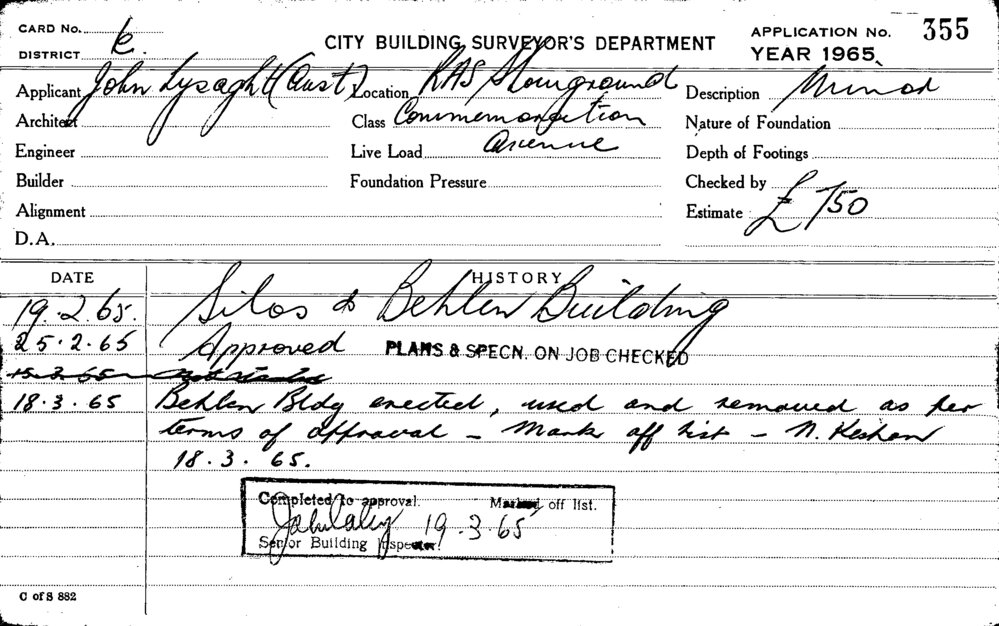 CARD No.
DISTRICT E.
CITY BUILDING SURVEYOR'S DEPARTMENT
APPLICATION No. 355
YEAR 1965
Applicant John Lysaght (Aust)
Location RAS Showground
Description Minor
Architect
Class Commemoration
Nature of Foundation
Engineer
Live Load Avenue
Depth of Footings
Builder
Foundation Pressure
Checked by
Alignment
Estimate £750
D.A.
DATE HISTORY
19.2.65. Silos & Behlen Building
25.2.65 Approved PLANS & SPECN. ON JOB CHECKED
15.3.65 Not started
18.3.65 Behlen Bldg erected, used and removed as per
terms of approval - Mark off list - N.
18.3.65.
Completed to approval. Marked off list.
19.3.65
Senior Building Inspector.
C of S 882